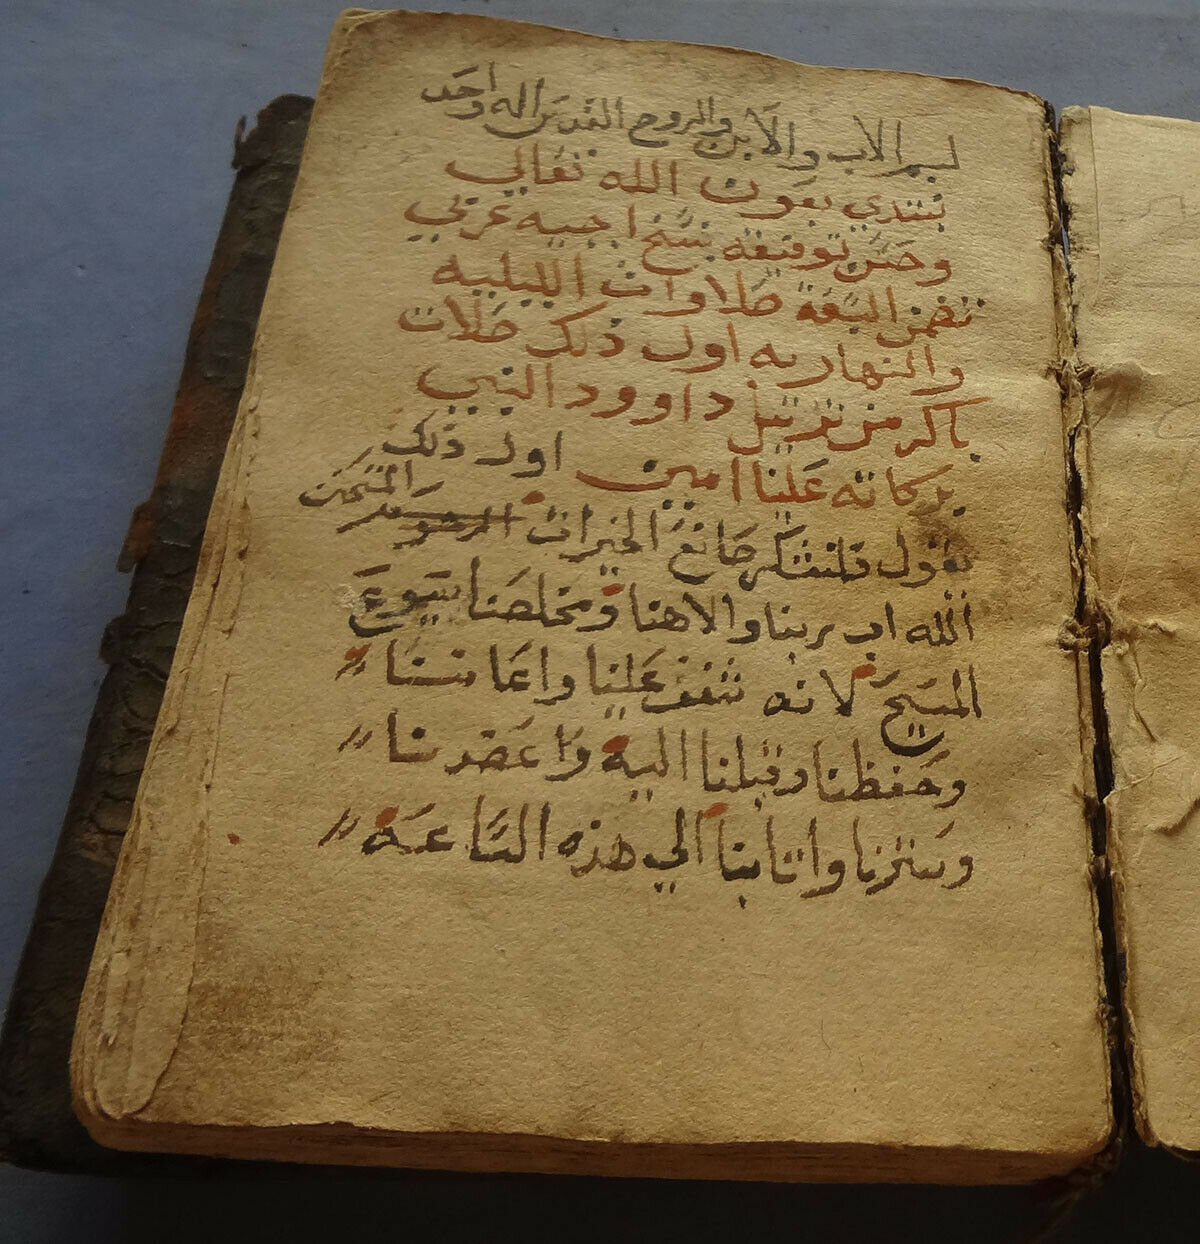 بسم الاب والابن والروح القدس اله واحد
نبتدي بعون الله تعالي
وحسن توفيقه بنسخ اجبيه عربي
تتضمن السبعة صلاوات الليليه
والنهاريه اول ذلك صلات
باكر من ترتيل داوود النبي
بركاته علينا امين اول ذلك
تقول فلنشكر صانع الخيرات المتحنن
الله اب ربنا والاهنا ومخلصنا يسوع
المسيح لانه شفق علينا واعاننا
وحفظنا وقبلنا اليه واعضدنا
وسترنا واتا بنا الي هذه الساعة